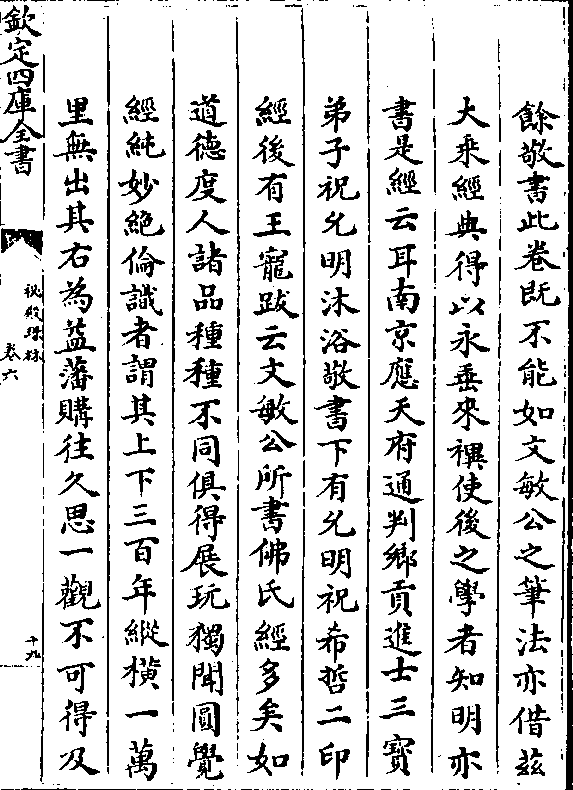 餘敬書此卷既不能如文敏公之筆法亦借兹
大乗經典得以永垂來禩使後之學者知明亦
書是經云耳南京應天府通判鄉貢進士三寳
弟子祝允明沐浴敬書下有允明祝希哲二印
經後有王寵跋云文敏公所書佛氏經多矣如
道徳度人諸品種種不同俱得展玩獨聞圓覺
經純妙絶倫識者謂其上下三百年縱横一萬
里無出其右為益藩購往久思一觀不可得及
欽定四庫全書
秘殿珠林
卷六
十九